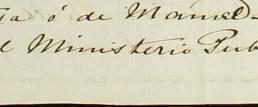 ta ó de Manuel
l Ministerio Pub